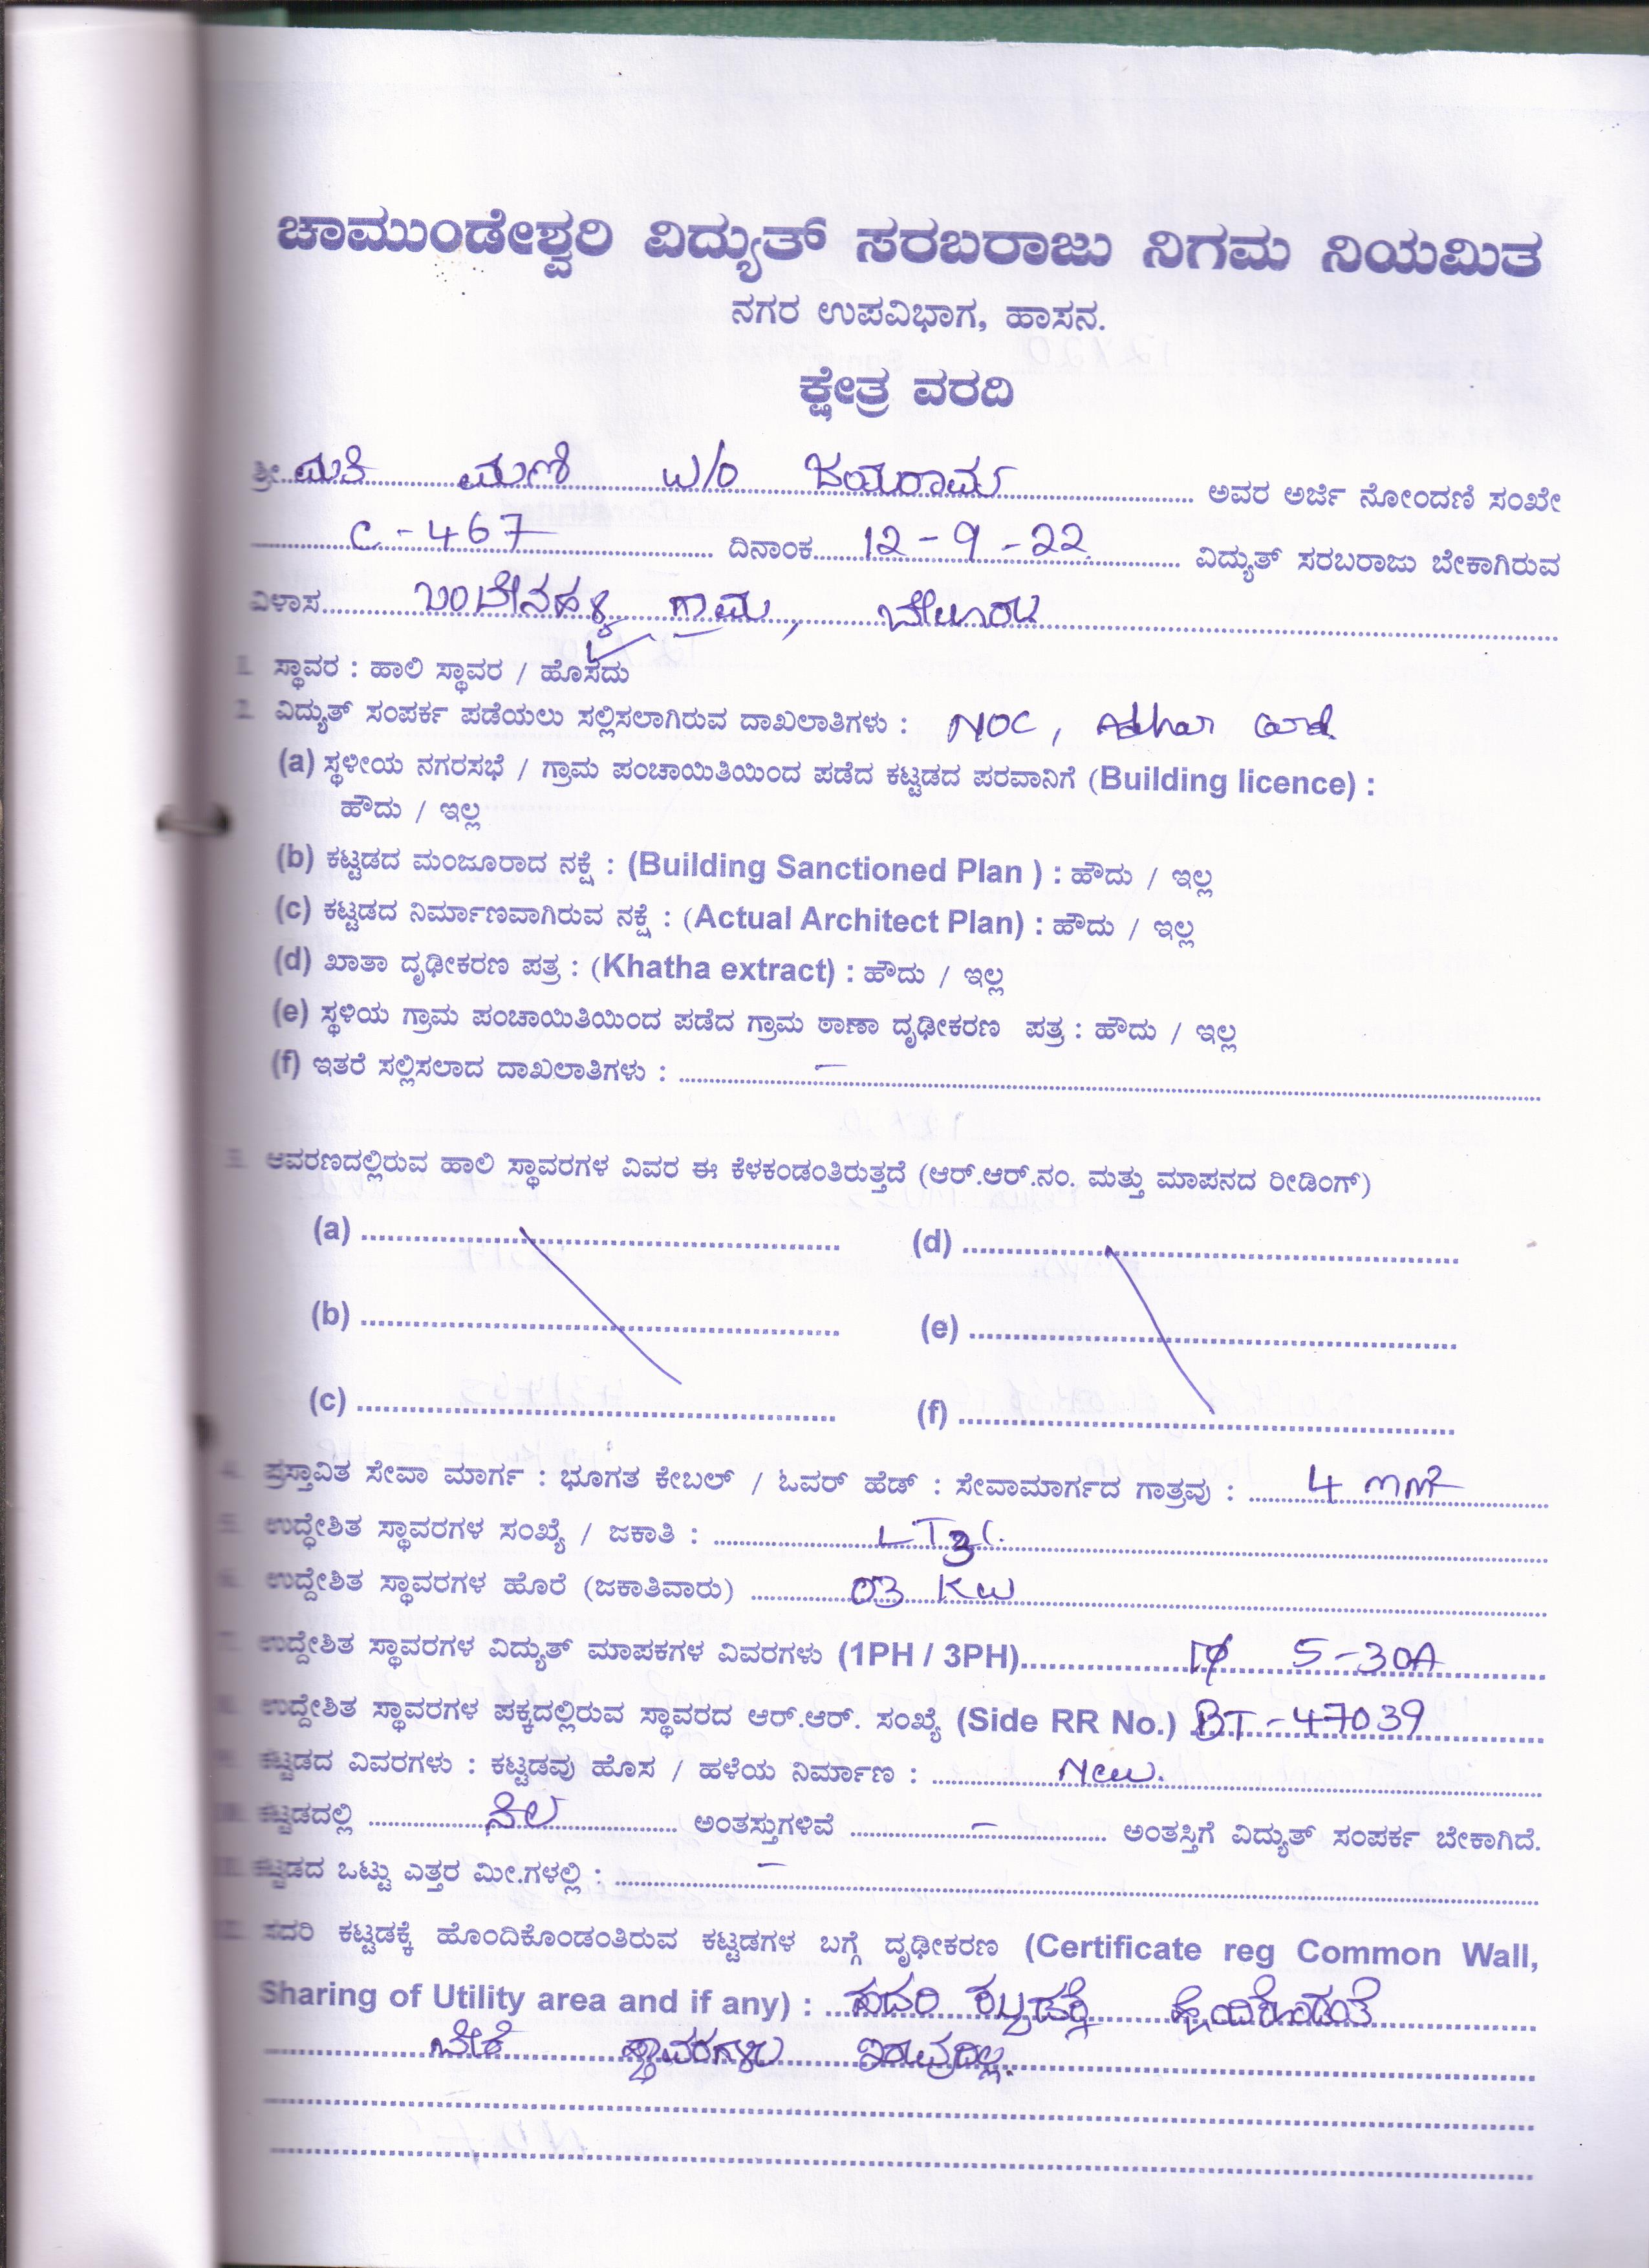 ಚಾಮುಂಡೇಶ್ವರಿ ವಿದ್ಯುತ್ ಸರಬರಾಜು ನಿಗಮ ನಿಯಮಿತ
ನಗರ ಉಪವಿಭಾಗ, ಹಾಸನ.
ಕ್ಷೇತ್ರ ವರದಿ
ಶ್ರೀ ಮತಿ ಮಣಿ w/o ಜಯರಾಮ ಅವರ ಅರ್ಜಿ ನೋಂದಣಿ ಸಂಖೇ
C-467 ದಿನಾಂಕ 12-9-22 ವಿದ್ಯುತ್ ಸರಬರಾಜು ಬೇಕಾಗಿರುವ
ವಿಳಾಸ ಗ್ರಾಮ, ಬೇಲೂರು
1. ಸ್ಥಾವರ : ಹಾಲಿ ಸ್ಥಾವರ / ಹೊಸದು
2. ವಿದ್ಯುತ್ ಸಂಪರ್ಕ ಪಡೆಯಲು ಸಲ್ಲಿಸಲಾಗಿರುವ ದಾಖಲಾತಿಗಳು : NOC, Adhar Card
(a) ಸ್ಥಳೀಯ ನಗರಸಭೆ / ಗ್ರಾಮ ಪಂಚಾಯಿತಿಯಿಂದ ಪಡೆದ ಕಟ್ಟಡದ ಪರವಾನಿಗೆ (Building licence) :
ಹೌದು / ಇಲ್ಲ
(b) ಕಟ್ಟಡದ ಮಂಜೂರಾದ ನಕ್ಷೆ : (Building Sanctioned Plan ) : ಹೌದು / ಇಲ್ಲ
(c) ಕಟ್ಟಡದ ನಿರ್ಮಾಣವಾಗಿರುವ ನಕ್ಷೆ : (Actual Architect Plan) : ಹೌದು / ಇಲ್ಲ
(d) ಖಾತಾ ದೃಢೀಕರಣ ಪತ್ರ : (Khatha extract) : ಹೌದು / ಇಲ್ಲ
(e) ಸ್ಥಳಿಯ ಗ್ರಾಮ ಪಂಚಾಯಿತಿಯಿಂದ ಪಡೆದ ಗ್ರಾಮ ಠಾಣಾ ದೃಢೀಕರಣ ಪತ್ರ : ಹೌದು / ಇಲ್ಲ
(f) ಇತರೆ ಸಲ್ಲಿಸಲಾದ ದಾಖಲಾತಿಗಳು : –
3. ಆವರಣದಲ್ಲಿರುವ ಹಾಲಿ ಸ್ಥಾವರಗಳ ವಿವರ ಈ ಕೆಳಕಂಡಂತಿರುತ್ತದೆ (ಆರ್.ಆರ್.ನಂ. ಮತ್ತು ಮಾಪನದ ರೀಡಿಂಗ್)
(a) (d)
(b) (e)
(c) (f)
4. ಪ್ರಸ್ತಾವಿತ ಸೇವಾ ಮಾರ್ಗ : ಭೂಗತ ಕೇಬಲ್ / ಓವರ್ ಹೆಡ್ : ಸೇವಾಮಾರ್ಗದ ಗಾತ್ರವು : 4 mm²
5. ಉದ್ಧೇಶಿತ ಸ್ಥಾವರಗಳ ಸಂಖ್ಯೆ / ಜಕಾತಿ : LT3
6. ಉದ್ದೇಶಿತ ಸ್ಥಾವರಗಳ ಹೊರೆ (ಜಕಾತಿವಾರು) 03 KW
7. ಉದ್ದೇಶಿತ ಸ್ಥಾವರಗಳ ವಿದ್ಯುತ್ ಮಾಪಕಗಳ ವಿವರಗಳು (1PH / 3PH) 1φ 5-30A
8. ಉದ್ದೇಶಿತ ಸ್ಥಾವರಗಳ ಪಕ್ಕದಲ್ಲಿರುವ ಸ್ಥಾವರದ ಆರ್.ಆರ್. ಸಂಖ್ಯೆ (Side RR No.) BT-47039
9. ಕಟ್ಟಡದ ವಿವರಗಳು : ಕಟ್ಟಡವು ಹೊಸ / ಹಳೆಯ ನಿರ್ಮಾಣ : New.
10. ಕಟ್ಟಡದಲ್ಲಿ ನೆಲ ಅಂತಸ್ತುಗಳಿವೆ – ಅಂತಸ್ತಿಗೆ ವಿದ್ಯುತ್ ಸಂಪರ್ಕ ಬೇಕಾಗಿದೆ.
11. ಕಟ್ಟಡದ ಒಟ್ಟು ಎತ್ತರ ಮೀ.ಗಳಲ್ಲಿ : –
12. ಸದರಿ ಕಟ್ಟಡಕ್ಕೆ ಹೊಂದಿಕೊಂಡಂತಿರುವ ಕಟ್ಟಡಗಳ ಬಗ್ಗೆ ದೃಢೀಕರಣ (Certificate reg Common Wall,
Sharing of Utility area and if any) : ಸದರಿ ಕಟ್ಟಡಕ್ಕೆ ಹೊಂದಿಕೊಂಡಂತೆ
ಬೇರೆ ಸ್ಥಾವರಗಳು ಇರುವುದಿಲ್ಲ.